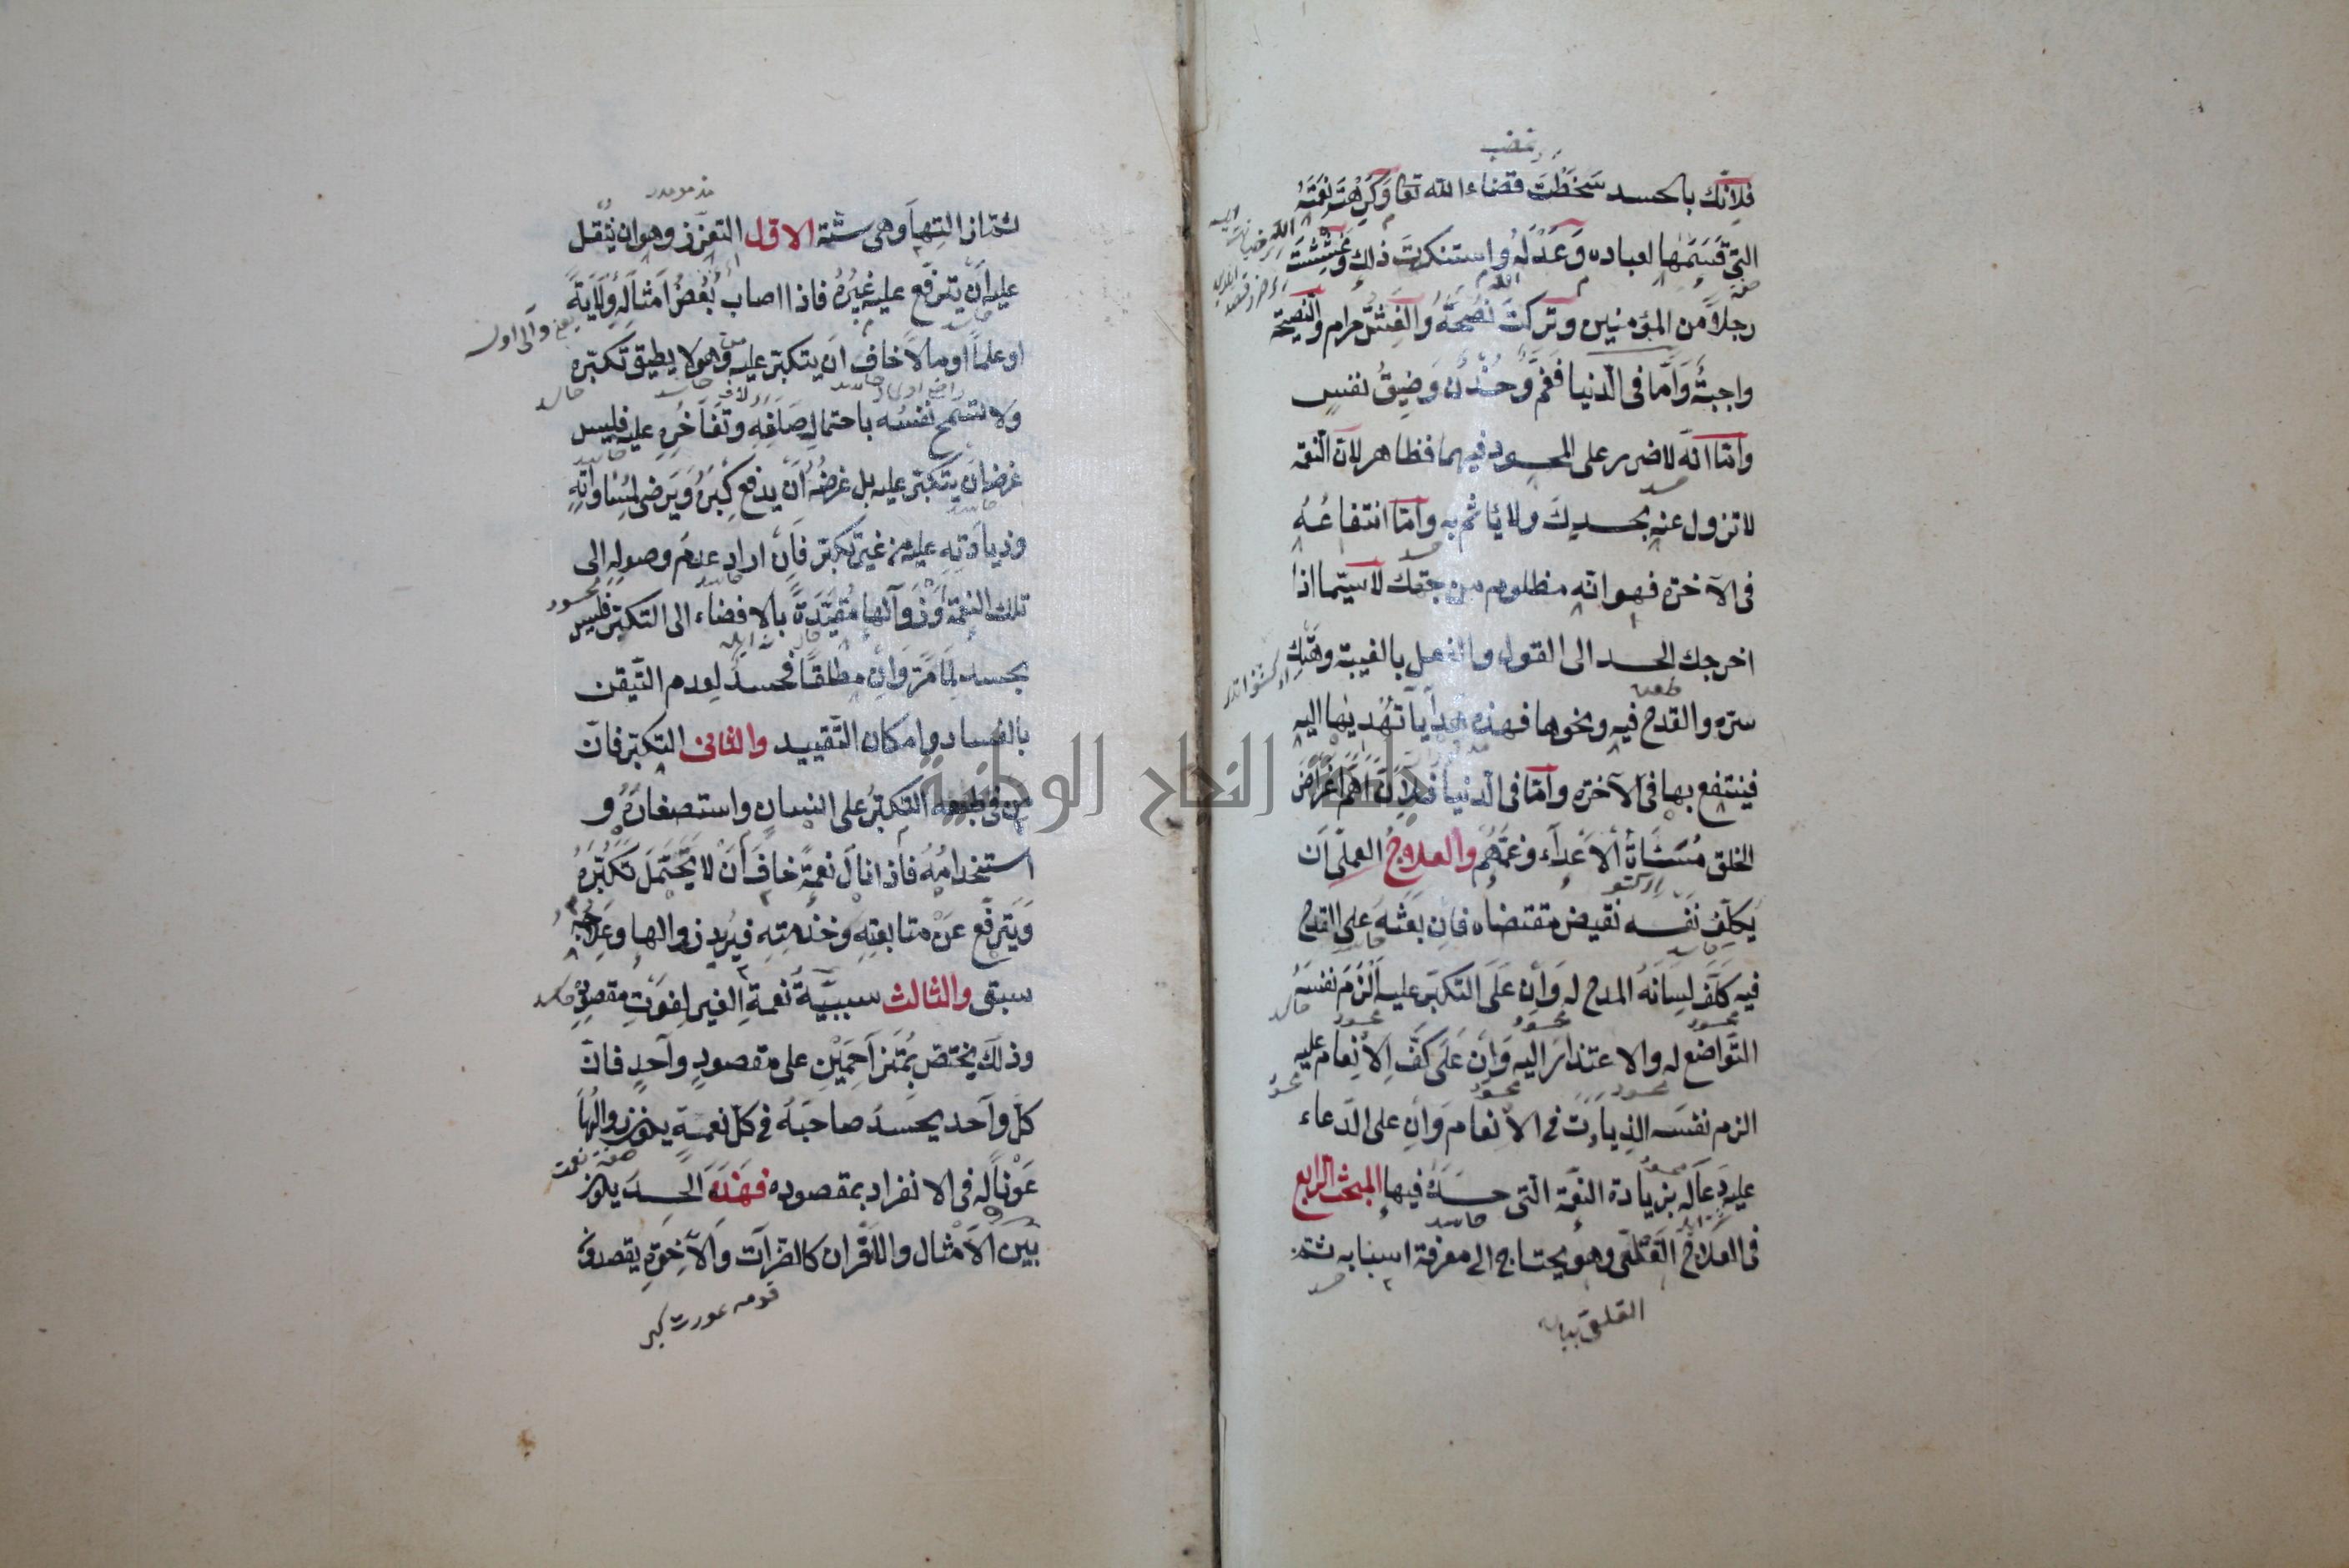 غضب
فلانك بالحسد سخطت قضاء الله تعا وكرهت نعمته
التي قسمها لعباده وعدله واستنكرت ذلك وغششت
رجلا من المؤمنين وتركت نصيحته والغش حرام والنصيحة
واجبة وأما في الدنيا فغم وحزن وضيق نفس
وأما انه لا ضرر على المحسود فيهما فظاهر لان النعمة
لا تزول عنه بحسدك ولا يأثم به وأما انتفاعه
في الآخرة فهو انه مظلوم من جهتك لا سيما اذا
اخرجك الحسد الى القول والفعل بالغيبة وهتك
ستره والقدح فيه ونحوها فهذه هدايا تهديها اليه
فينتفع بها في الآخرة وأما في الدنيا فلان اهم اغراض
الخلق مساءة الاعداء وغمهم والعلاج العملي ان
يكلف نفسه نقيض مقتضاه فان بعثه على القدح
فيه كلف لسانه المدح له وإن على التكبر عليه الزم نفسه
التواضع له والاعتذار اليه وإن على كف الانعام عليه
الزم نفسه الزيادة في الانعام وإن على الدعاء
عليه دعا له بزيادة النعمة التي حسده فيها المبحث الرابع
في العلاج القلعي وهو يحتاج الى معرفة اسبابه ثم
ثم ازالتها وهي ستة الاول التعزز وهو ان يثقل
عليه أن يترفع عليه غيره فاذا اصاب بعض امثاله ولاية
او علما او مالا خاف ان يتكبر عليه وهو لا يطيق تكبره
ولا تسمح نفسه باحتمال صلفه وتفاخره عليه فليس
غرضه ان يتكبر عليه بل غرضه أن يدفع كبره ويرضى بمساواته
وزيادته عليه من غير تكبر فان اراد عدم وصوله الى
تلك النعمة او زوالها مقيدة بالافضاء الى التكبر فليس
بحسد لما مر وإن مطلقا فحسد لعدم التيقن
بالفساد وامكان التقييد والثاني التكبر فان
من في طبعه التكبر على انسان واستصغاره و
استخدامه فاذا نال نعمة خاف أن لا يحتمل تكبره
ويترفع عن متابعته وخدمته فيريد زوالها وعلاجه
سبق والثالث سببية نعمة الغير لفوت مقصوده
وذلك يختص بمتزاحمين على مقصود واحد فان
كل واحد يحسد صاحبه في كل نعمة يكون زوالها
عونا له في الانفراد بمقصوده فهذه الحسد يكون
بين الامثال والاقران كالضرات والاخوة يقصدون